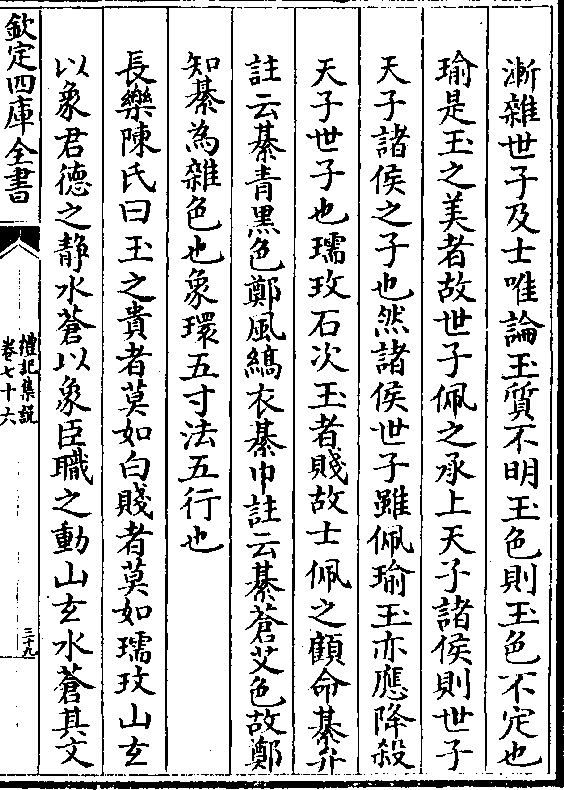 漸雜世子及士唯論玉質不明玉色則玉色不定也
瑜是玉之美者故世子佩之承上天子諸侯則世子
天子諸侯之子也然諸侯世子雖佩瑜玉亦應降殺
天子世子也瓀玟石次玉者賤故士佩之顧命綦弁
註云綦青黑色鄭風縞衣綦巾註云綦蒼艾色故鄭
知綦為雜色也象環五寸法五行也
長樂陳氏曰玉之貴者莫如白賤者莫如瓀玟山玄
以象君德之静水蒼以象臣職之動山玄水蒼其文
欽定四庫全書
禮記集說
卷七十六
三十九